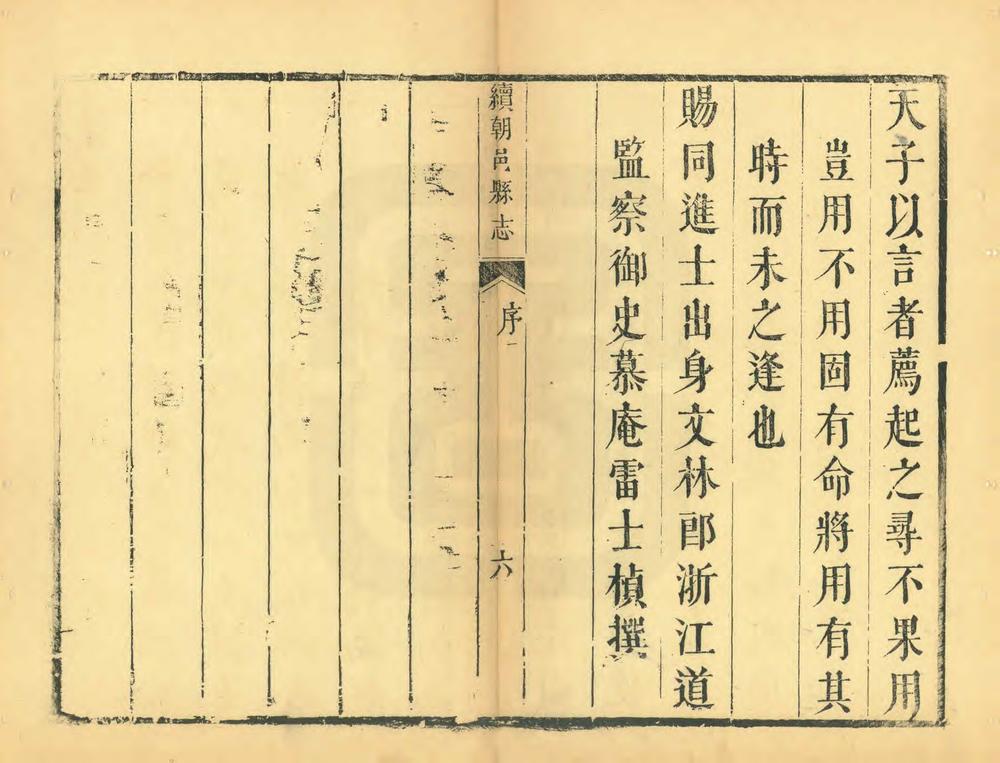 天子以言者薦起之尋不果用
豈用不用固有命將用有其
時而未之逢也
賜同進士出身文林郎浙江道
監察御史慕庵雷士楨撰
續朝邑縣志
序
六